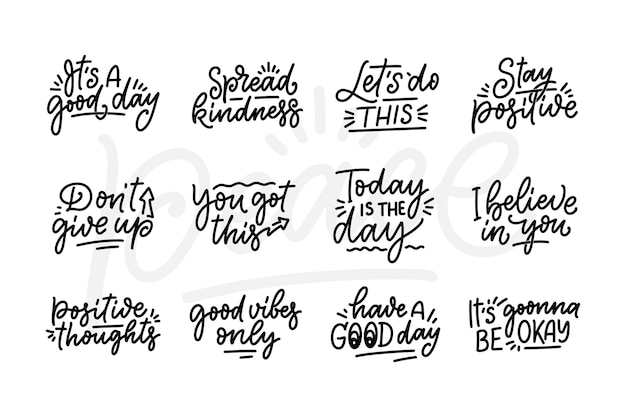 It's A
good day
Spread
kindness
Let's do
THIS
Stay
positive
Don't
give up
You got
this
Today
IS THE
day
I believe
in you
positive
thoughts
good vibes
only
have A
GOOD day
It's goonna
BE OKAY
peace